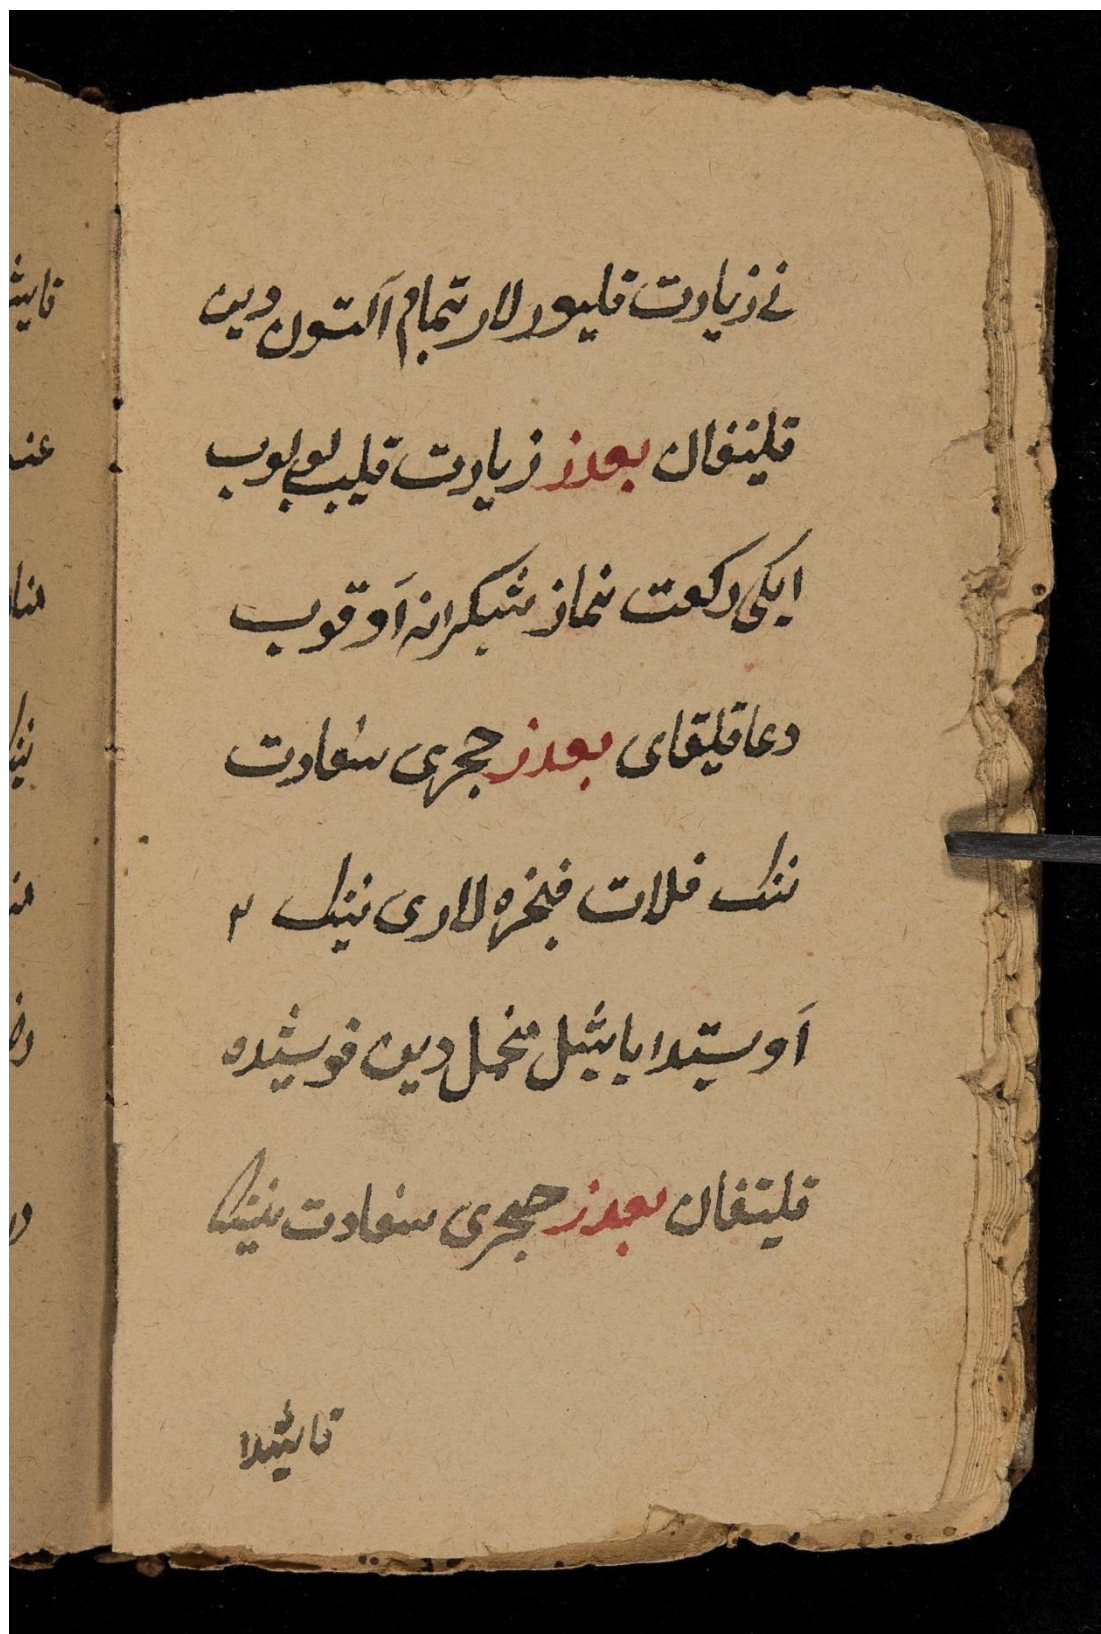 نی زیارت قلیورلار تمام آلتون دین
قلینغان بعدز زیارت قلیب بولوب
ایکی رکعت نماز شکرانه اَوقوب
دعا قلیقای بعدز حجری سعادت
ننک فلات فنجره لاری نینک ۲
اَوستیدا یاشیل مخمل دین فوشیده
قلینغان بعدز حجری سعادت نینک
قاشیدا